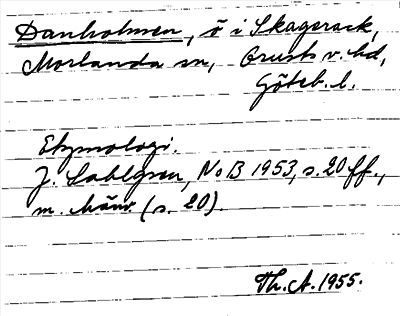 Danholmen, ö i Skagerack,
Morlanda sn, Orusts v. hd,
Göteb. l.
Etymologi.
J. Sahlgren, NoB 1953, s. 20 ff.,
m. hänv. (s. 20).
Th. A. 1955.